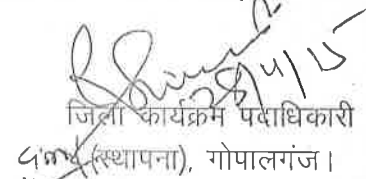 28/4/15
जिला कार्यक्रम पदाधिकारी
(स्थापना), गोपालगंज।